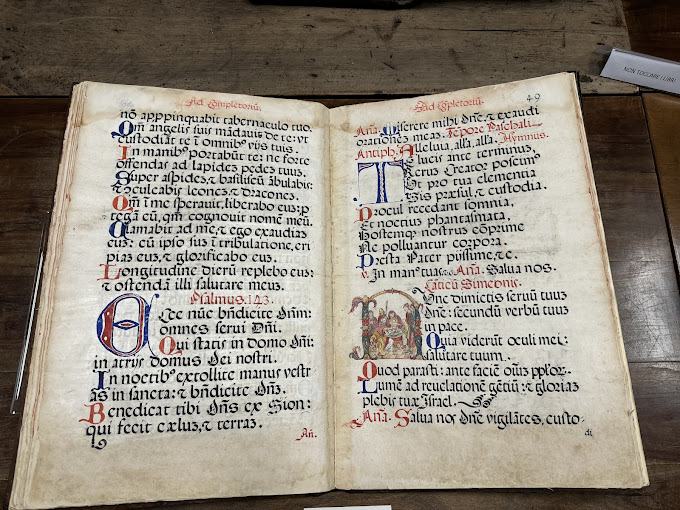 Ad Completoriũ.
nõ appp̃inquabit tabernaculo tuo.
Qm̃ angelis suis mãdauit de te: vt
custodiãt te ĩ omnibꝰ vijs tuis.
In manibꝰ portabũt te: ne forte
offendas ad lapidem pedem tuum.
Super aspidẽ, ⁊ basiliscũ ãbulabis:
⁊ cõculcabis leonem, ⁊ draconem.
Qm̃ ĩ me sperauit, liberabo eum: p
tegã eũ, qm̃ cognouit nomẽ meũ.
Clamabit ad me, ⁊ ego exaudiam
eum: cũ ipso sum ĩ tribulatione, eri
piam eum, ⁊ glorificabo eum.
Longitudine dierũ replebo eum:
⁊ ostendã illi salutare meum.
Psalmus.143.
ECce nũc bñdicite Dñm:
omnes serui Dñi.
Qui statis in domo Dñi:
in atrijs domus Dei nostri.
In noctibꝰ extollite manus vestr
as in sancta: ⁊ bñdicite Dñm.
Benedicat tibi Dñs ex Sion:
qui fecit cælum, ⁊ terram.
Añ.
Ad Cõpletoriũ.
49
Aña. Miserere mihi Dñe, ⁊ exaudi
orationem meam. Tẽpore Paschali
Antiph. Alleluia, alla, alla. Hymnus.
TE lucis ante terminum
Rerum Creator poscimꝰ
Vt pro tua clementia
Sis præsul, ⁊ custodia.
Procul recedant somnia,
Et noctium phantasmata,
Hostemqꝫ nostrum cõprime
Ne polluantur corpora.
Præsta Pater pijssime, ⁊c.
V. In manꝰ tuas. Aña. Salua nos.
Cãticũ Simeonis.
NVnc dimictis seruũ tuum
Dñe: secundũ verbũ tuum
in pace.
Quia viderũt oculi mei:
salutare tuum.
Quod parasti: ante faciẽ oĩum pplõr.
Lumẽ ad reuelationẽ gẽtiũ: ⁊ gloriam
plebis tuæ Israel.
Aña. Salua nos Dñe vigilãtes, custo-
di
NON TOCCARE I LIBRI